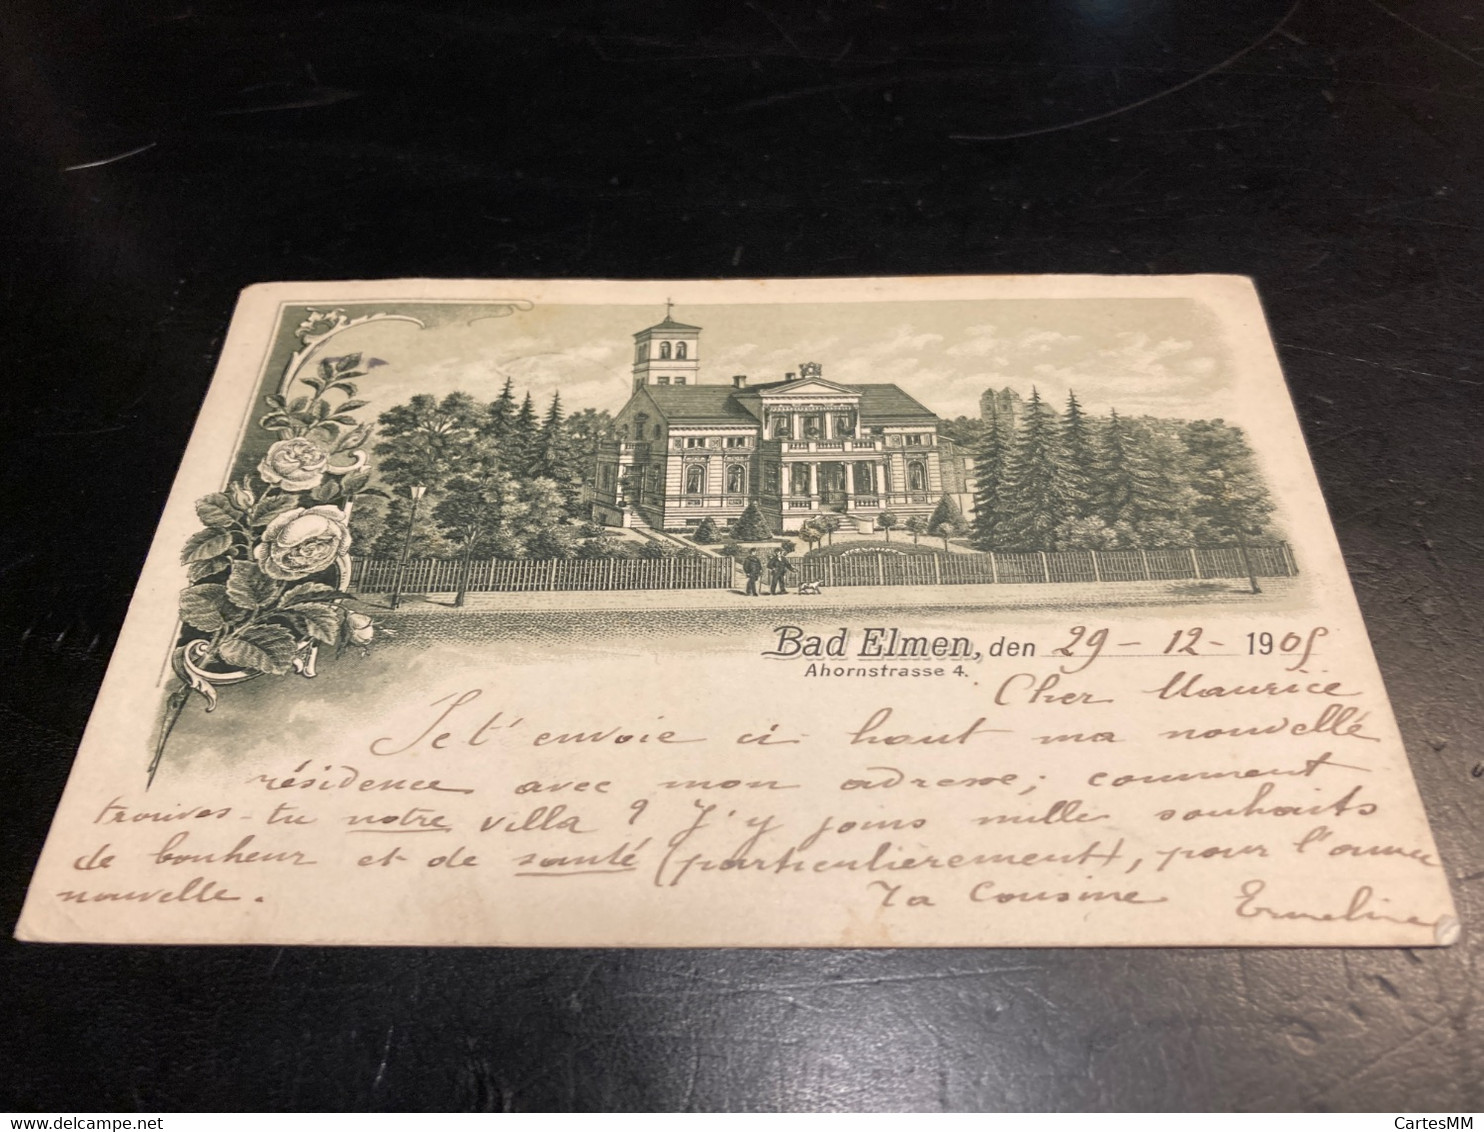 Bad Elmen, den 29 - 12 - 1905
Ahornstrasse 4.
Cher Maurice
Je t'envoie ci haut ma nouvelle
résidence avec mon adresse; comment
trouves-tu notre villa ? J'y joins mille souhaits
de bonheur et de santé (particulièrement), pour l'année
nouvelle.
Ta cousine Ermeline
delcampe.net
CartesMM